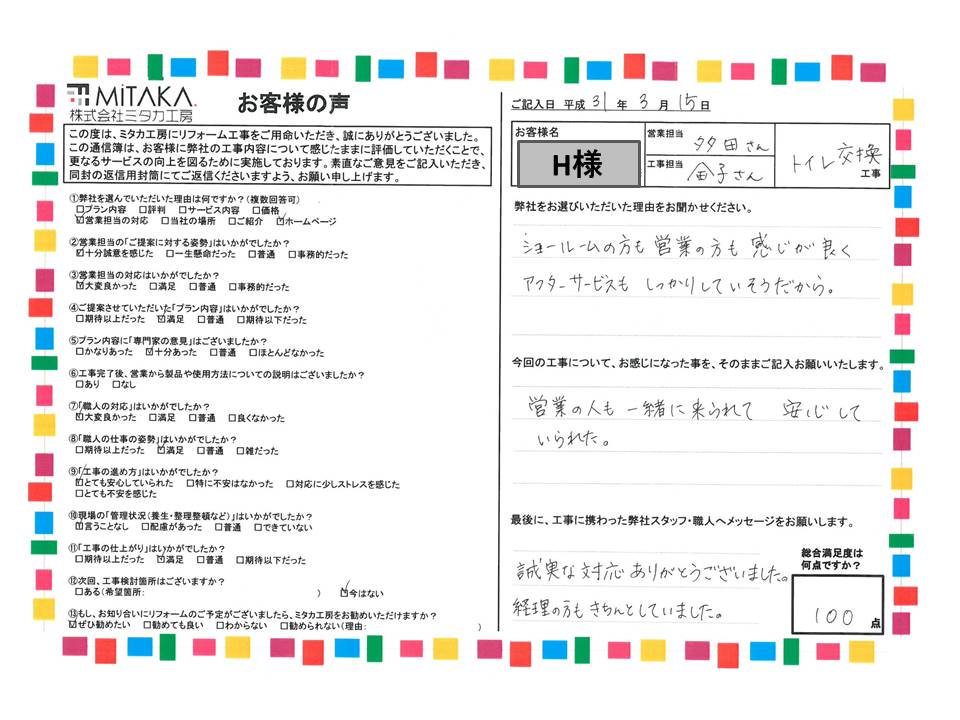 MiTAKA.
株式会社ミタカ工房
お客様の声
この度は、ミタカ工房にリフォーム工事をご用命いただき、誠にありがとうございました。
この通信簿は、お客様に弊社の工事内容について感じたままに評価していただくことで、
更なるサービスの向上を図るために実施しております。素直なご意見をご記入いただき、
同封の返信用封筒にてご返信くださいますよう、お願い申し上げます。
①弊社を選んでいただいた理由は何ですか?(複数回答可)
□プラン内容 □評判 □サービス内容 □価格
☑営業担当の対応 □当社の場所 □ご紹介 ☑ホームページ
②営業担当の「ご提案に対する姿勢」はいかがでしたか?
☑十分誠意を感じた □一生懸命だった □普通 □事務的だった
③営業担当の対応はいかがでしたか?
☑大変良かった □満足 □普通 □事務的だった
④ご提案させていただいた「プラン内容」はいかがでしたか?
□期待以上だった ☑満足 □普通 □期待以下だった
⑤プラン内容に「専門家の意見」はございましたか?
□かなりあった ☑十分あった □普通 □ほとんどなかった
⑥工事完了後、営業から製品や使用方法についての説明はございましたか?
□あり □なし
⑦「職人の対応」はいかがでしたか?
☑大変良かった □満足 □普通 □良くなかった
⑧「職人の仕事の姿勢」はいかがでしたか?
□期待以上だった ☑満足 □普通 □雑だった
⑨「工事の進め方」はいかがでしたか?
☑とても安心していられた □特に不安はなかった □対応に少しストレスを感じた
□とても不安を感じた
⑩現場の「管理状況(養生・整理整頓など)」はいかがでしたか?
☑言うことなし □配慮があった □普通 □できていない
⑪「工事の仕上がり」はいかがでしたか?
□期待以上だった ☑満足 □普通 □期待以下だった
⑫次回、工事検討箇所はございますか?
□ある(希望箇所: ) ☑今はない
⑬もし、お知り合いにリフォームのご予定がございましたら、ミタカ工房をお勧めいただけますか?
☑ぜひ勧めたい □勧めても良い □わからない □勧められない(理由: )
ご記入日 平成 31 年 3 月 15 日
お客様名
H様
営業担当
多田さん
工事担当
さん
トイレ交換
工事
弊社をお選びいただいた理由をお聞かせください。
ショールームの方も営業の方も感じが良く
アフターサービスも しっかりしていそうだから。
今回の工事について、お感じになった事を、そのままご記入お願いいたします。
営業の人も一緒に来られて 安心して
いられた。
最後に、工事に携わった弊社スタッフ・職人へメッセージをお願いします。
誠実な対応ありがとうございました。
経理の方もきちんとしていました。
総合満足度は
何点ですか?
100 点